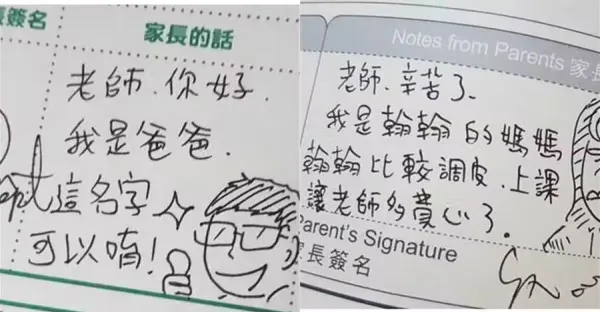 長簽名
家長的話
老師.你好.
我是爸爸.
這名字
可以唷!
Notes from Parents 家長
老師.辛苦了.
我是翰翰的媽媽
翰翰比較調皮.上課
讓老師多費心了.
Parent's Signature
家長簽名